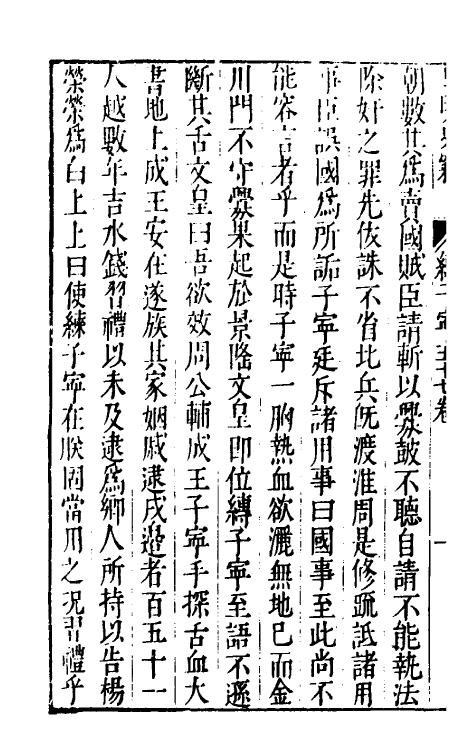 練子寧 卷
朝數其爲賣國賊臣請斬以釁鼓不聽自請不能執法
除奸之罪先伏誅不省北兵旣渡淮周是修疏詆諸用
事臣誤國爲所詬子寧廷斥諸用事曰國事至此尚不
能容言者乎而是時子寧一胸熱血欲灑無地已而金
川門不守釁果起於景隆文皇卽位縛子寧至語不遜
斷其舌文皇曰吾欲效周公輔成王子寧手探舌血大
書地上成王安在遂族其家姻戚逮戍邊者百五十一
人越數年吉水錢習禮以未及逮爲鄉人所持以告楊
榮榮爲白上上曰使練子寧在朕固當用之况習禮乎